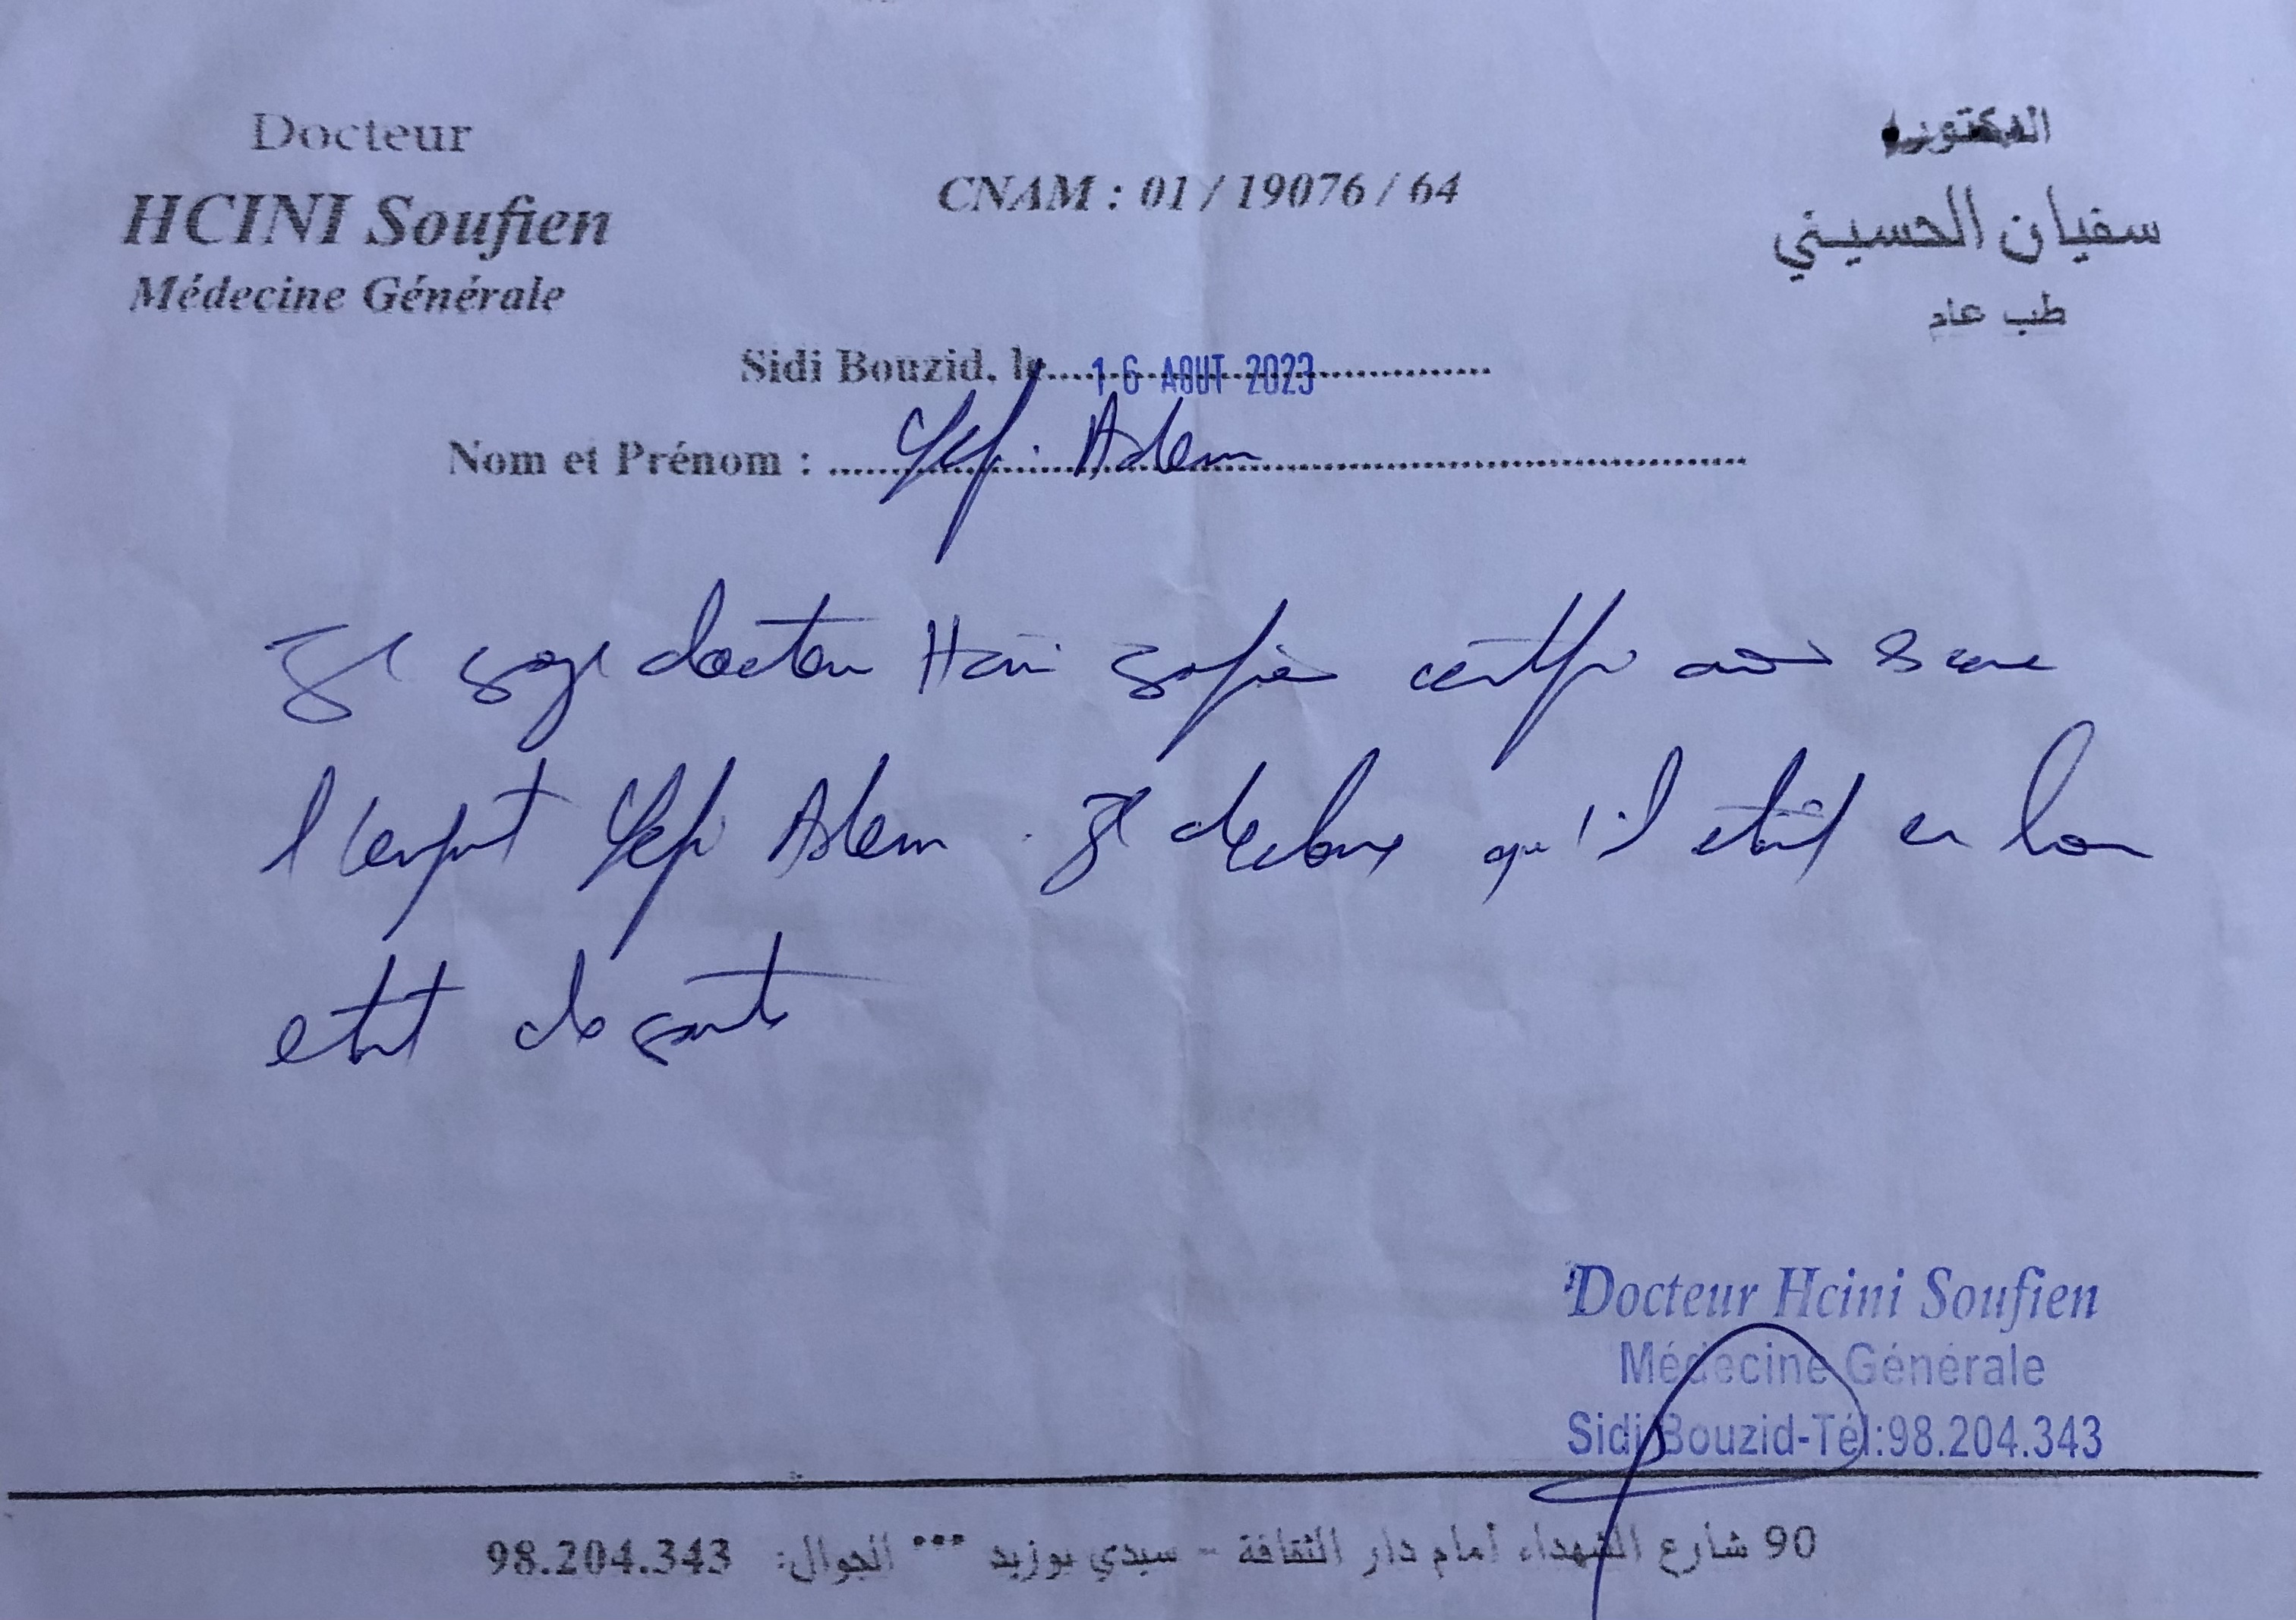 Docteur
HCINI Soufien
Médecine Générale
CNAM : 01 / 19076 / 64
الدكتور
سفيان الحسيني
طب عام
Sidi Bouzid, le 16 AOUT 2023
Nom et Prénom : Adem
Je docteur Hcini Sofien certifie avoir
l'enfant Adem. Je declare qu'il etait en bon
etat de sante
Docteur Hcini Soufien
Médecine Générale
Sidi Bouzid-Tél:98.204.343
90 شارع الشهداء أمام دار الثقافة - سيدي بوزيد *** الجوال: 98.204.343